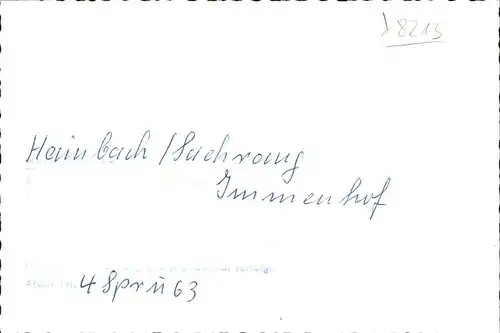 ) 8213
Hainbach / Sachrang
Immenhof
4 Sprü 63